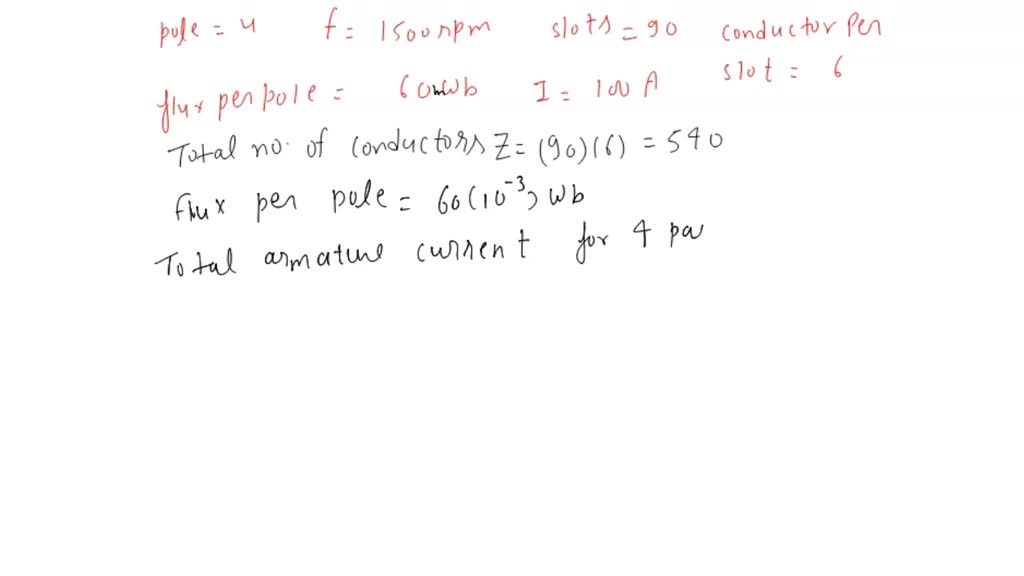 pole = 4 f = 1500 rpm slots = 90 conductor per
slot = 6
flux per pole = 60 mWb I = 100 A
Total no. of conductors Z = (90)(6) = 540
Flux per pole = 60(10⁻³) Wb
Total armature current for 4 pa